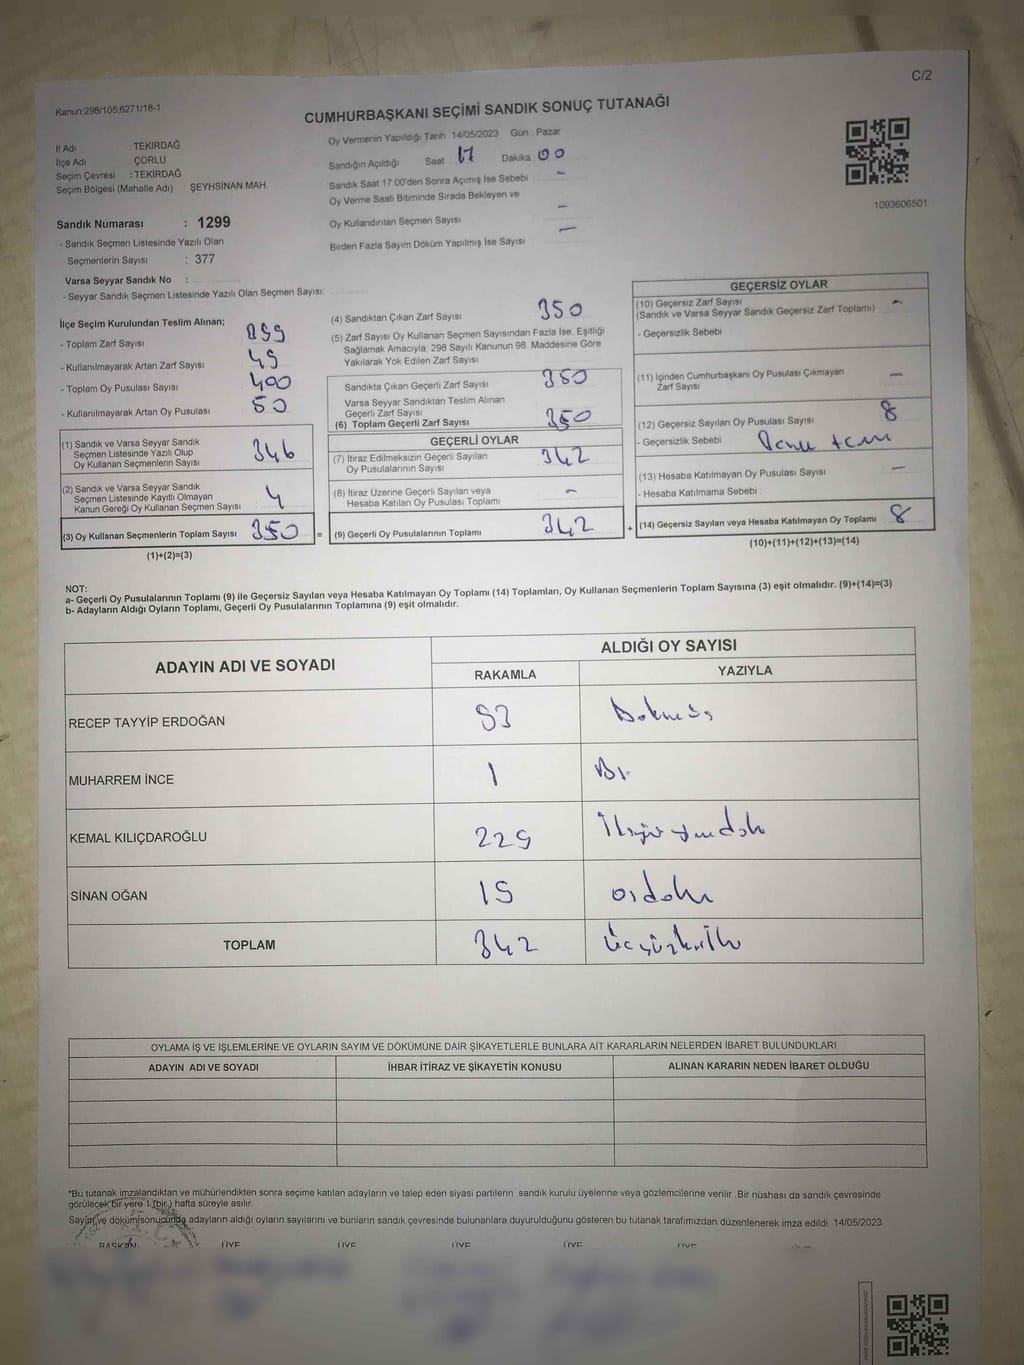 C/2
Kanun:298/105;6271/18-1
CUMHURBAŞKANI SEÇİMİ SANDIK SONUÇ TUTANAĞI
İl Adı : TEKİRDAĞ
İlçe Adı : ÇORLU
Seçim Çevresi : TEKİRDAĞ
Seçim Bölgesi (Mahalle Adı) : ŞEYHSİNAN MAH.
Sandık Numarası : 1299
- Sandık Seçmen Listesinde Yazılı Olan
Seçmenlerin Sayısı : 377
Varsa Seyyar Sandık No :
- Seyyar Sandık Seçmen Listesinde Yazılı Olan Seçmen Sayısı:
Oy Vermenin Yapıldığı Tarih 14/05/2023 Gün : Pazar
Sandığın Açıldığı Saat 17 Dakika 00
Sandık Saat 17:00'den Sonra Açımış İse Sebebi –
Oy Verme Saati Bitiminde Sırada Bekleyen ve
Oy Kullandırılan Seçmen Sayısı –
Birden Fazla Sayım Döküm Yapılmış İse Sayısı –
1093606501
İlçe Seçim Kurulundan Teslim Alınan;
- Toplam Zarf Sayısı
- Kullanılmayarak Artan Zarf Sayısı 49
- Toplam Oy Pusulası Sayısı 400
- Kullanılmayarak Artan Oy Pusulası 50
(1) Sandık ve Varsa Seyyar Sandık
Seçmen Listesinde Yazılı Olup
Oy Kullanan Seçmenlerin Sayısı 346
(2) Sandık ve Varsa Seyyar Sandık
Seçmen Listesinde Kayıtlı Olmayan
Kanun Gereği Oy Kullanan Seçmen Sayısı 4
(3) Oy Kullanan Seçmenlerin Toplam Sayısı 350
(1)+(2)=(3)
=
(4) Sandıktan Çıkan Zarf Sayısı 350
(5) Zarf Sayısı Oy Kullanan Seçmen Sayısından Fazla İse, Eşitliği
Sağlamak Amacıyla, 298 Sayılı Kanunun 98. Maddesine Göre
Yakılarak Yok Edilen Zarf Sayısı
Sandıkta Çıkan Geçerli Zarf Sayısı 350
Varsa Seyyar Sandıktan Teslim Alınan
Geçerli Zarf Sayısı
(6) Toplam Geçerli Zarf Sayısı 350
GEÇERLİ OYLAR
(7) İtiraz Edilmeksizin Geçerli Sayılan
Oy Pusulalarının Sayısı 342
(8) İtiraz Üzerine Geçerli Sayılan veya
Hesaba Katılan Oy Pusulası Toplamı –
(9) Geçerli Oy Pusulalarının Toplamı 342
+
GEÇERSİZ OYLAR
(10) Geçersiz Zarf Sayısı –
(Sandık ve Varsa Seyyar Sandık Geçersiz Zarf Toplamı)
- Geçersizlik Sebebi
(11) İçinden Cumhurbaşkanı Oy Pusulası Çıkmayan
Zarf Sayısı –
(12) Geçersiz Sayılan Oy Pusulası Sayısı 8
- Geçersizlik Sebebi
(13) Hesaba Katılmayan Oy Pusulası Sayısı –
- Hesaba Katılmama Sebebi :
(14) Geçersiz Sayılan veya Hesaba Katılmayan Oy Toplamı 8
(10)+(11)+(12)+(13)=(14)
NOT:
a- Geçerli Oy Pusulalarının Toplamı (9) ile Geçersiz Sayılan veya Hesaba Katılmayan Oy Toplamı (14) Toplamları, Oy Kullanan Seçmenlerin Toplam Sayısına (3) eşit olmalıdır. (9)+(14)=(3)
b- Adayların Aldığı Oyların Toplamı, Geçerli Oy Pusulalarının Toplamına (9) eşit olmalıdır.
ADAYIN ADI VE SOYADI
ALDIĞI OY SAYISI
RAKAMLA YAZIYLA
RECEP TAYYİP ERDOĞAN
MUHARREM İNCE 1 Bir
KEMAL KILIÇDAROĞLU 229
SİNAN OĞAN
TOPLAM 342
OYLAMA İŞ VE İŞLEMLERİNE VE OYLARIN SAYIM VE DÖKÜMÜNE DAİR ŞİKAYETLERLE BUNLARA AİT KARARLARIN NELERDEN İBARET BULUNDUKLARI
ADAYIN ADI VE SOYADI İHBAR İTİRAZ VE ŞİKAYETİN KONUSU ALINAN KARARIN NEDEN İBARET OLDUĞU
*Bu tutanak imzalandıktan ve mühürlendikten sonra seçime katılan adayların ve talep eden siyasi partilerin sandık kurulu üyelerine veya gözlemcilerine verilir. Bir nüshası da sandık çevresinde
görülecek bir yere 1 (bir ) hafta süreyle asılır.
Sayım ve dökümsonucunda adayların aldığı oyların sayılarını ve bunların sandık çevresinde bulunanlara duyurulduğunu gösteren bu tutanak tarafımızdan düzenlenerek imza edildi. 14/05/2023
BAŞKAN ÜYE ÜYE ÜYE ÜYE ÜYE